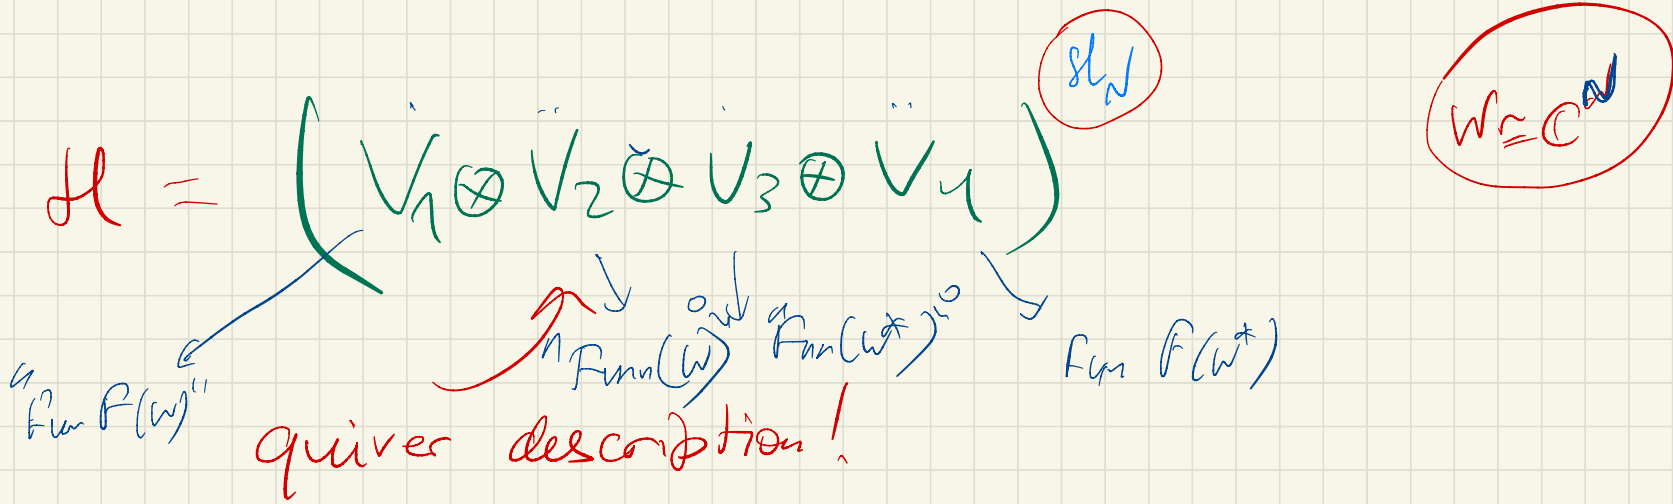 H = (V₁ ⊗ V₂ ⊗ V₃ ⊗ V₄)^{sl_N} W ≃ ℂ^N
"Fun F(W)" "Fun(W)" "Fun(W*)" Fun F(W*)
quiver description!